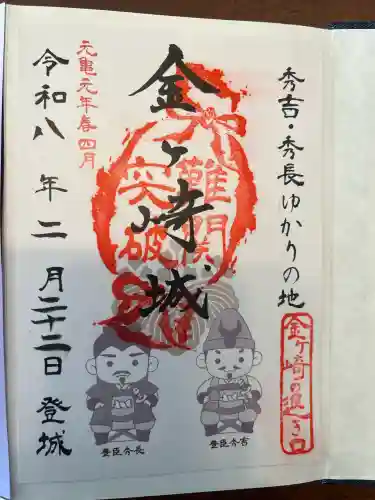 秀吉・秀長ゆかりの地
金ヶ崎の退き口
金ヶ崎城
難関
突破
元亀元年春四月
令和八年二月二十二日 登城
豊臣秀長
豊臣秀吉